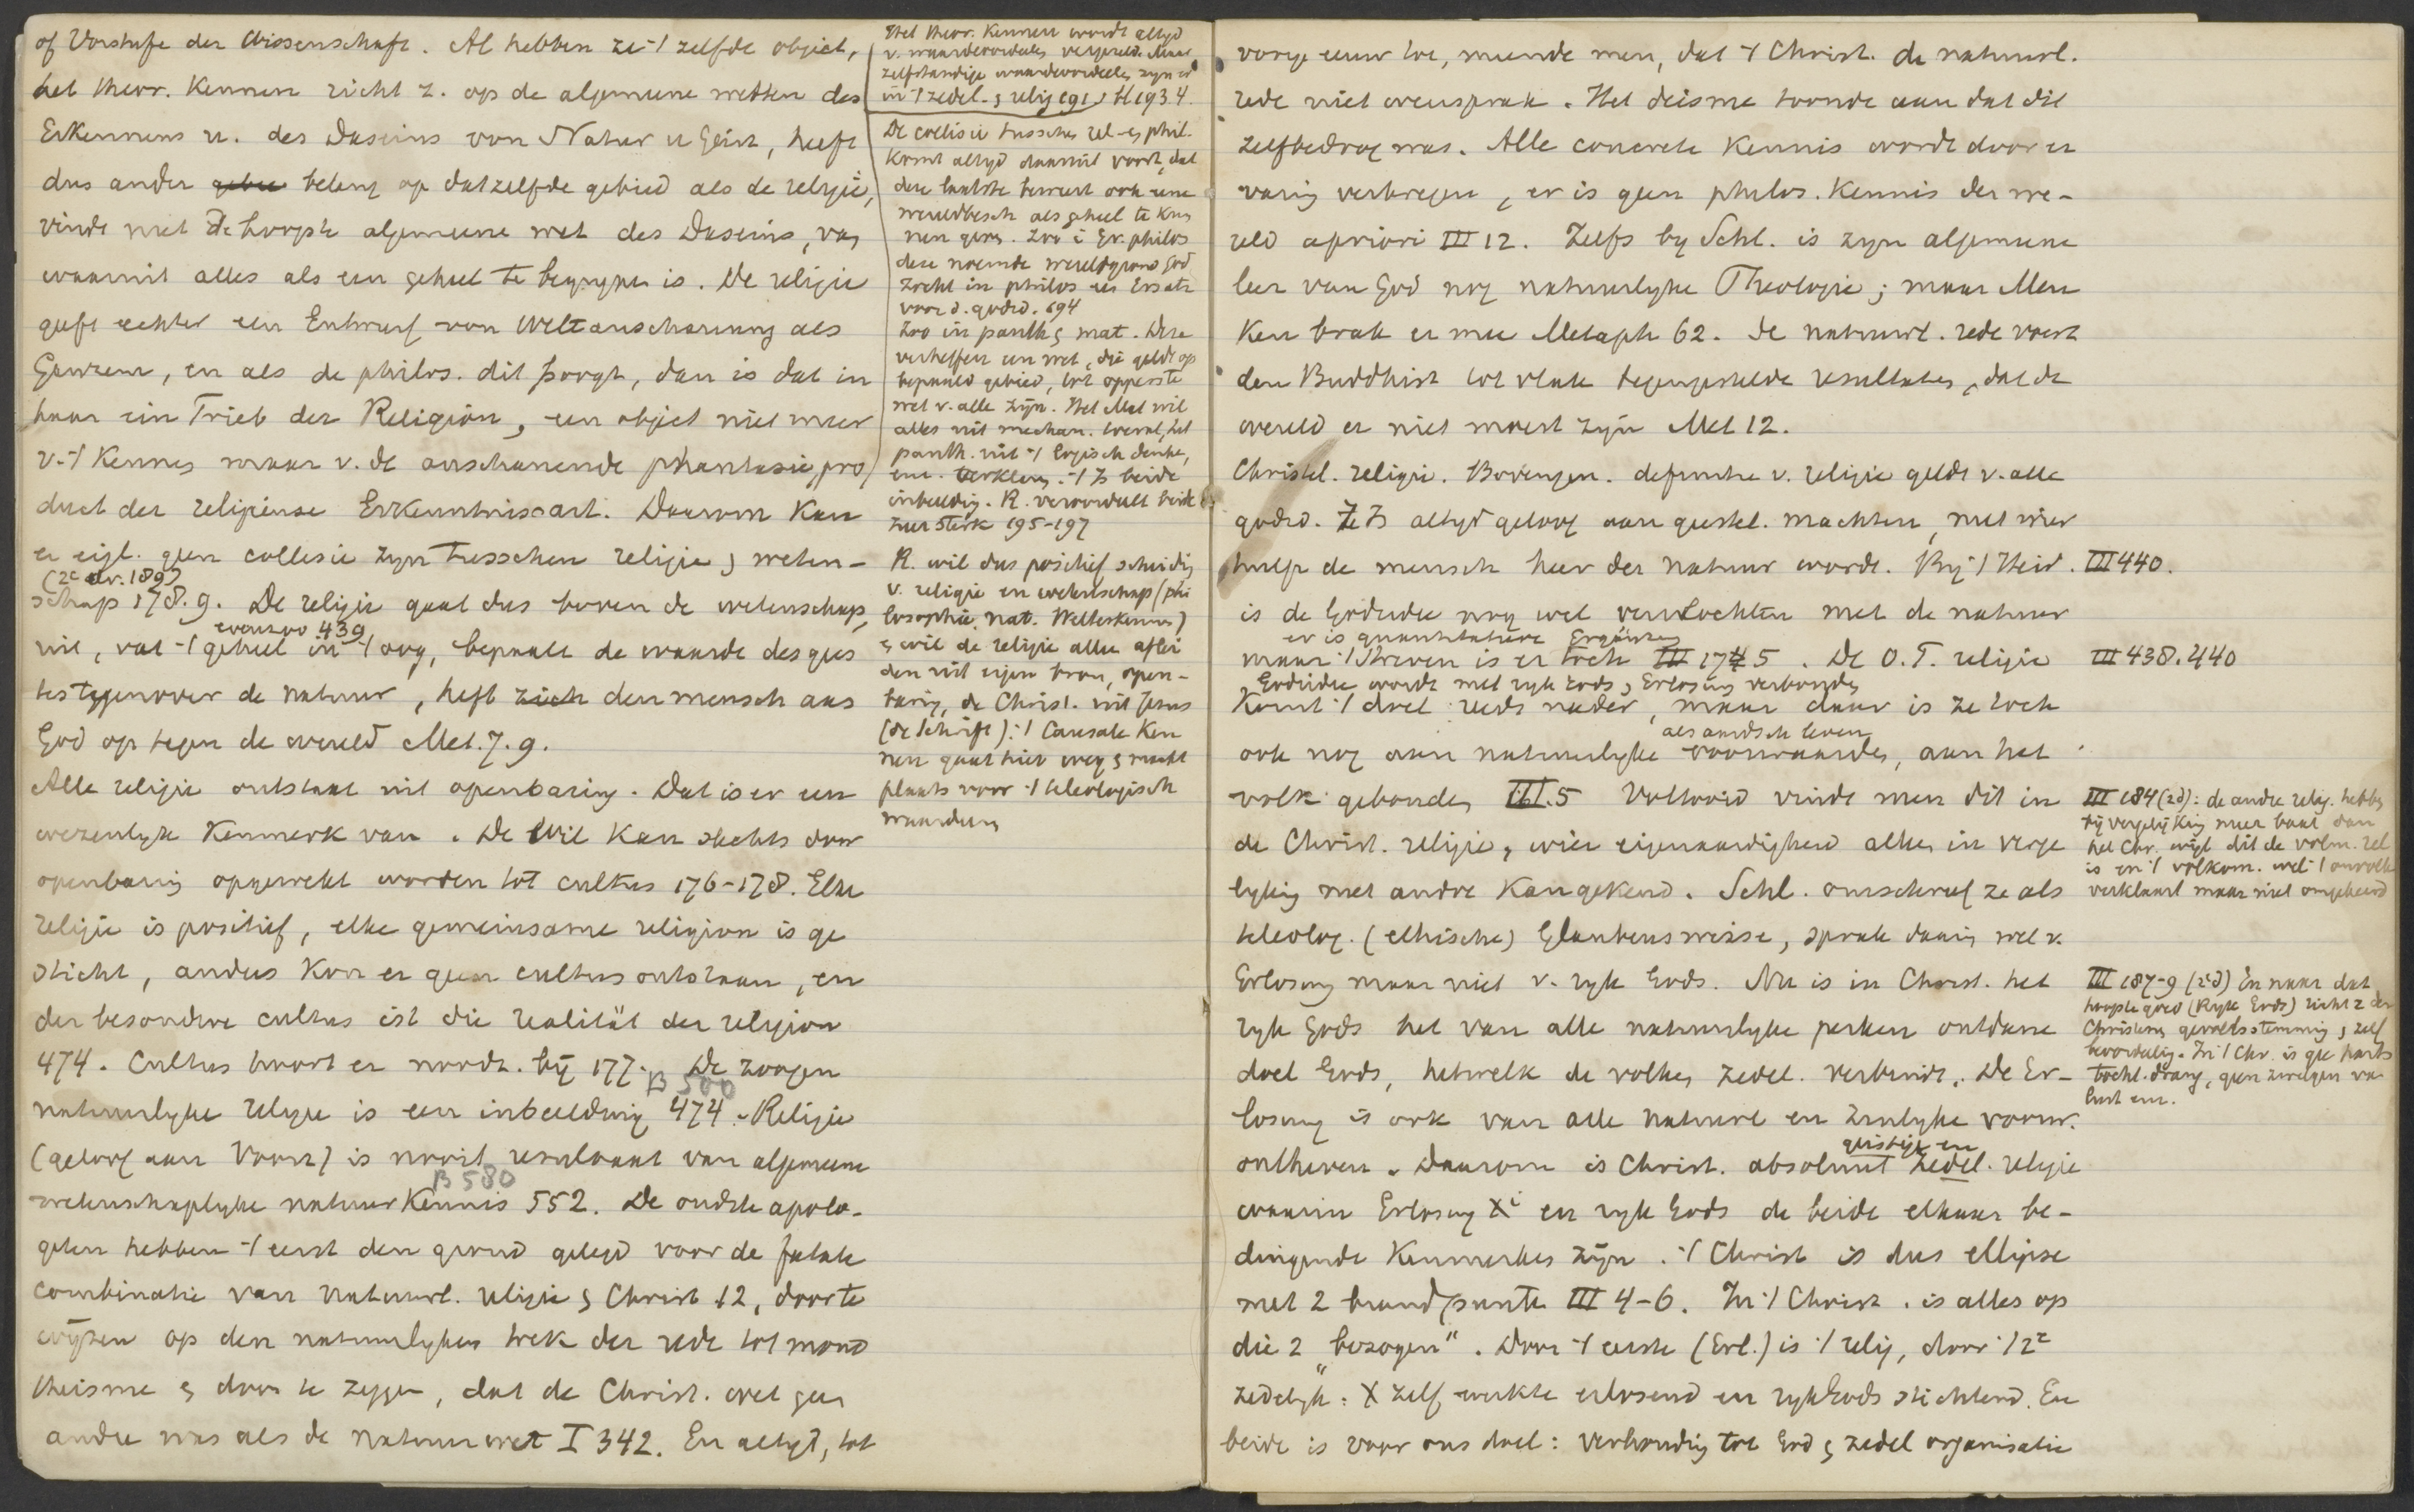 of Vorstufe der Wissenschaft. Al hebben ze 't zelfde object,
het theor. Kennen richt z. op de algemeene wetten des
Erkennens u. des Daseins von Natur u Geist, heeft
dus ander belang op datzelfde gebied als de religie,
vindt niet de hoogste algemeene wet des Daseins, van
waaruit alles als een geheel te begrypen is. De religie
geeft echter een Entwurf von Weltanschauung als
Ganzem, en als de philos. dit poogt, dan is dat in
haar ein Trieb der Religion, een object niet meer
v. 't Kennen maar v. de anschauende phantasie, pro
duct der religieuse Erkenntnissart. Daarom kan
er eigl. geen collisie zyn tusschen religie & weten-
(2e dr. 189)
schap 178.9. De religie gaat dus boven de wetenschap
evenzoo 439
uit, vat 't geheel in 't oog, bepaalt de waarde des gees
tes tegenover de natuur, heft den mensch aan
God op tegen de wereld Met. 7.9.
Alle religie ontstaat uit openbaring. Dat is er een
wezenlyk Kenmerk van. De Wil kan slechts door
openbaring opgewekt worden tot cultus 176-178. Elke
religie is positief, elke gemeinsame religion is ge
sticht, anders kon er geen cultus ontstaan, en
der besondere cultus ist die realität der religion
474. Cultus hoort er noodz. bij 177. De zoogen
B 500
natuurlyke religie is een inbeelding 474. Religie
(geloof aan Voorz) is nooit resultaat van algemeene
B 580
wetenschaplyke natuurkennis 552. De oudste apolo-
geten hebben 't eerst den grond gelegd voor de fatale
combinatie van natuurl. religie & Christ 12, door te
wijzen op den natuurlyken trek der rede tot mono
theisme & door te zeggen, dat de Christ. wet geen
andere was als de natuurwet I 342. En altyd, tot
Het theor. Kennen wordt altyd
v. waardeoordeelen vergezeld. Maar
zelfstandige waardeoordeelen zyn er
in 't zedel. & relig 191. H 193.4.
De collisie tusschen rel. en phil.
komt altyd daaruit voort, dat
deze laatste beweert ook eene
wereldbesch als geheel te kun
nen geven. Zoo i Gr. philos
deze noemde wereldgrond God
zocht in philos een Ersatz
voor d. godsd. 194
Zoo in panth & mat. Deze
verheffen een wet, die geldt op
bepaald gebied, tot opperste
wet v. alle zijn. Het Mat wil
alles uit mechan. toeval, het
panth. uit 't logisch denken,
enz. verklaren. 't Is beide
inbeelding. R. veroordeelt beide
zeer sterk 195-197
R. wil dus positief scheiding
v. religie en wetenschap (phi
losophie. Nat. Welterkennen)
& wil de religie alleen aflei
den uit eigen bron, open-
baring, de Christ. uit Jesus
(de Schrift): 't Causale Ken
nen gaat hier weg & maakt
plaats voor 't teleologisch
waardeeren
vorige eeuw toe, meende men, dat 't Christ. de natuurl.
rede niet weersprak. Het deisme toonde aan dat dit
zelfbedrog was. Alle concrete Kennis wordt door er
varing verkregen, er is geen philos. Kennis der we-
reld apriori III 12. Zelfs by Schl. is zyn algemeene
leer van God nog natuurlyke Theologie; maar Men
ken brak er mee Metaph 62. De natuurl. rede voert
den Buddhist tot vlak tegengestelde resultaten, dat de
wereld er niet moest zijn Met 12.
Christel. religie. Bovengen. definitie v. religie geldt v. alle
godsd. Ze Is altyd geloof aan geestel. machten, met wier
hulp de mensch heer der natuur wordt. Bij 't Heid. III 440.
is de Godsidee nog wel vervlochten met de natuur
er is quantitatieve Ergänzung
maar 't Streven is er toch III 174.5. De O.T. religie III 438.440
Godsidee wordt met ryk Gods & Erlösung verbonden
komt 't doel reeds nader, maar daar is ze toch
als aardsch leven
ook nog aan natuurlyke voorwaarden, aan het
volk gebonden III.5 Voltooid vindt men dit in
de Christ. religie, wier eigenaardigheid alleen in verge
lyking met andre kan gekend. Schl. omschreef ze als
teleolog. (ethische) Glaubensweise, sprak daarin wel v.
Erlosung maar niet v. ryk Gods. Nu is in Christ. het
ryk Gods het van alle natuurlyke perken ontdane
doel Gods, hetwelk de volken zedel. verbindt. De Er-
losung is ook van alle natuurl en zinlyke voorw.
geistige en
ontheven. Daarom is Christ. absoluut zedel. religie
waarin Erlosung Xi en ryk Gods de beide elkaar be-
dingende Kenmerken zijn. 't Christ is dus ellipse
met 2 brandpunten III 4-6. In 't Christ. is alles op
die 2 "bezogen". Door 't eerste (Erl.) is 't relig, door 't 2e
zedelyk: X zelf werkte erlosend en ryk Gods stichtend. En
beide is voor ons doel: verhouding tot God & zedel organisatie
III 184 (2d): de andre relig. hebben
bij vergelijking meer baat dan
het Chr. wijl dit de volm. rel
is en 't volkom. wel 't onvolk
verklaart maar niet omgekeerd
III 187-9 (2d) En naar dat
hoogste goed (Ryk Gods) richt z der
Christens gevoelsstemming & zelf
beoordeling. In 't Chr. is gee harts
tocht. drang, geen zwelgen van
lust enz.